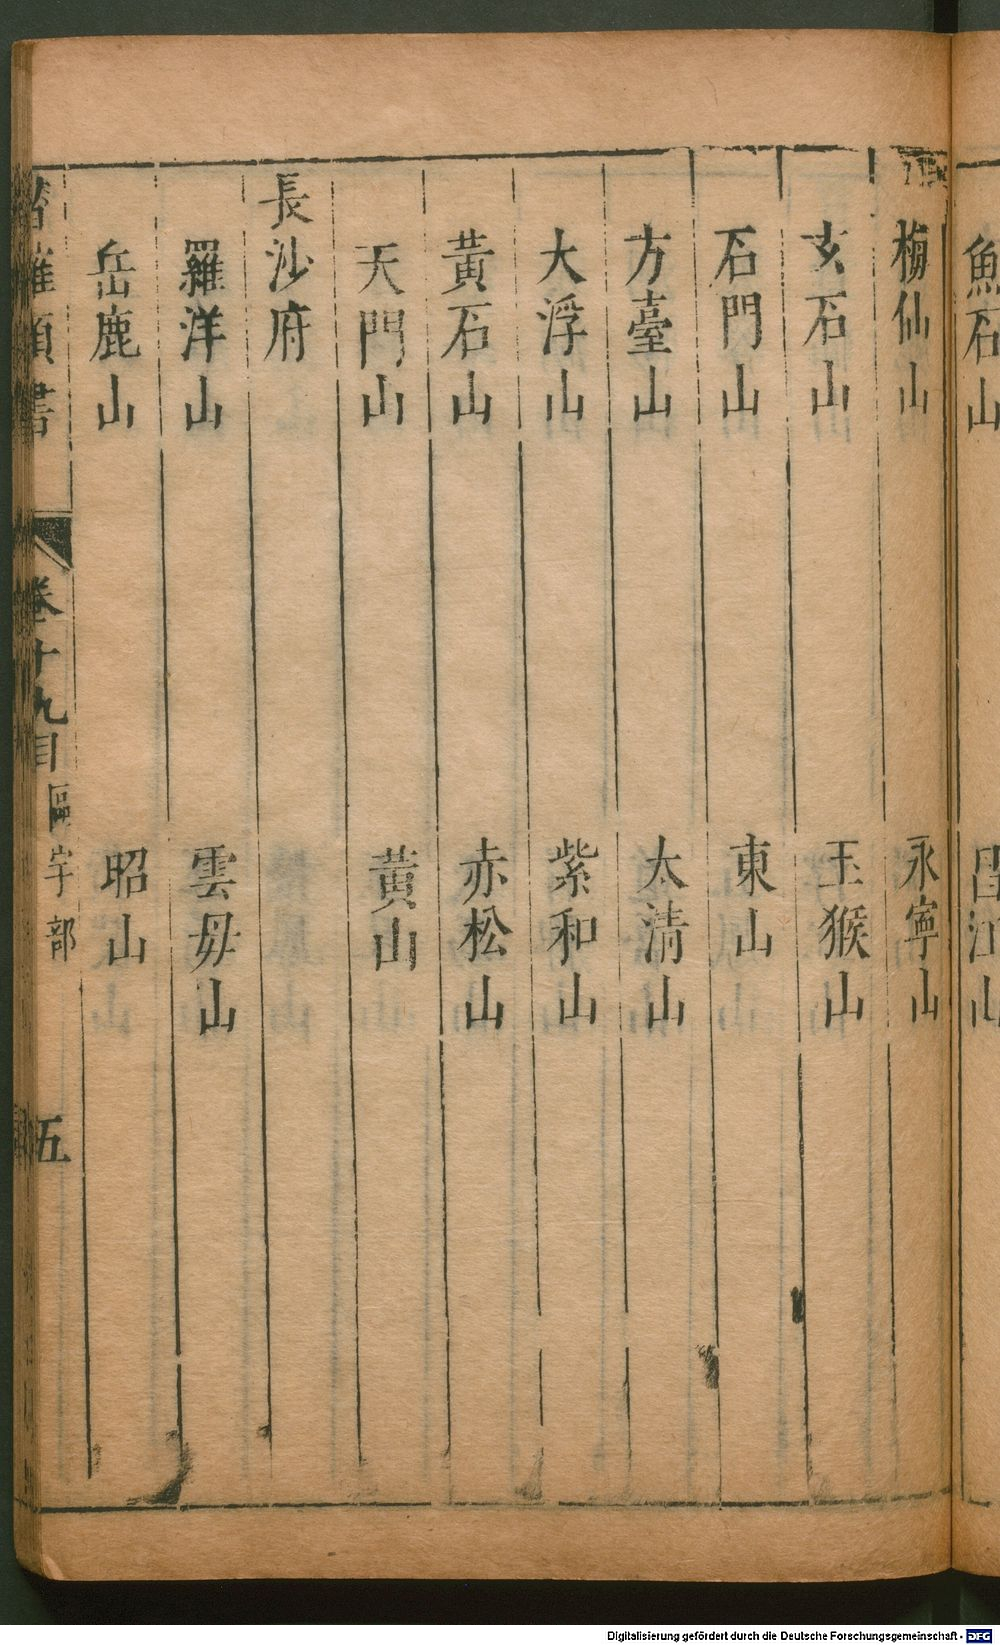 魚石山 昌江山
梅仙山 永寧山
玄石山 玉猴山
石門山 東山
方臺山 太清山
大浮山 紫和山
黃石山 赤松山
天門山 黃山
長沙府
羅洋山 雲母山
岳鹿山 昭山
潛確類書 卷十九目 區宇部 五
Digitalisierung gefördert durch die Deutsche Forschungsgemeinschaft - DFG